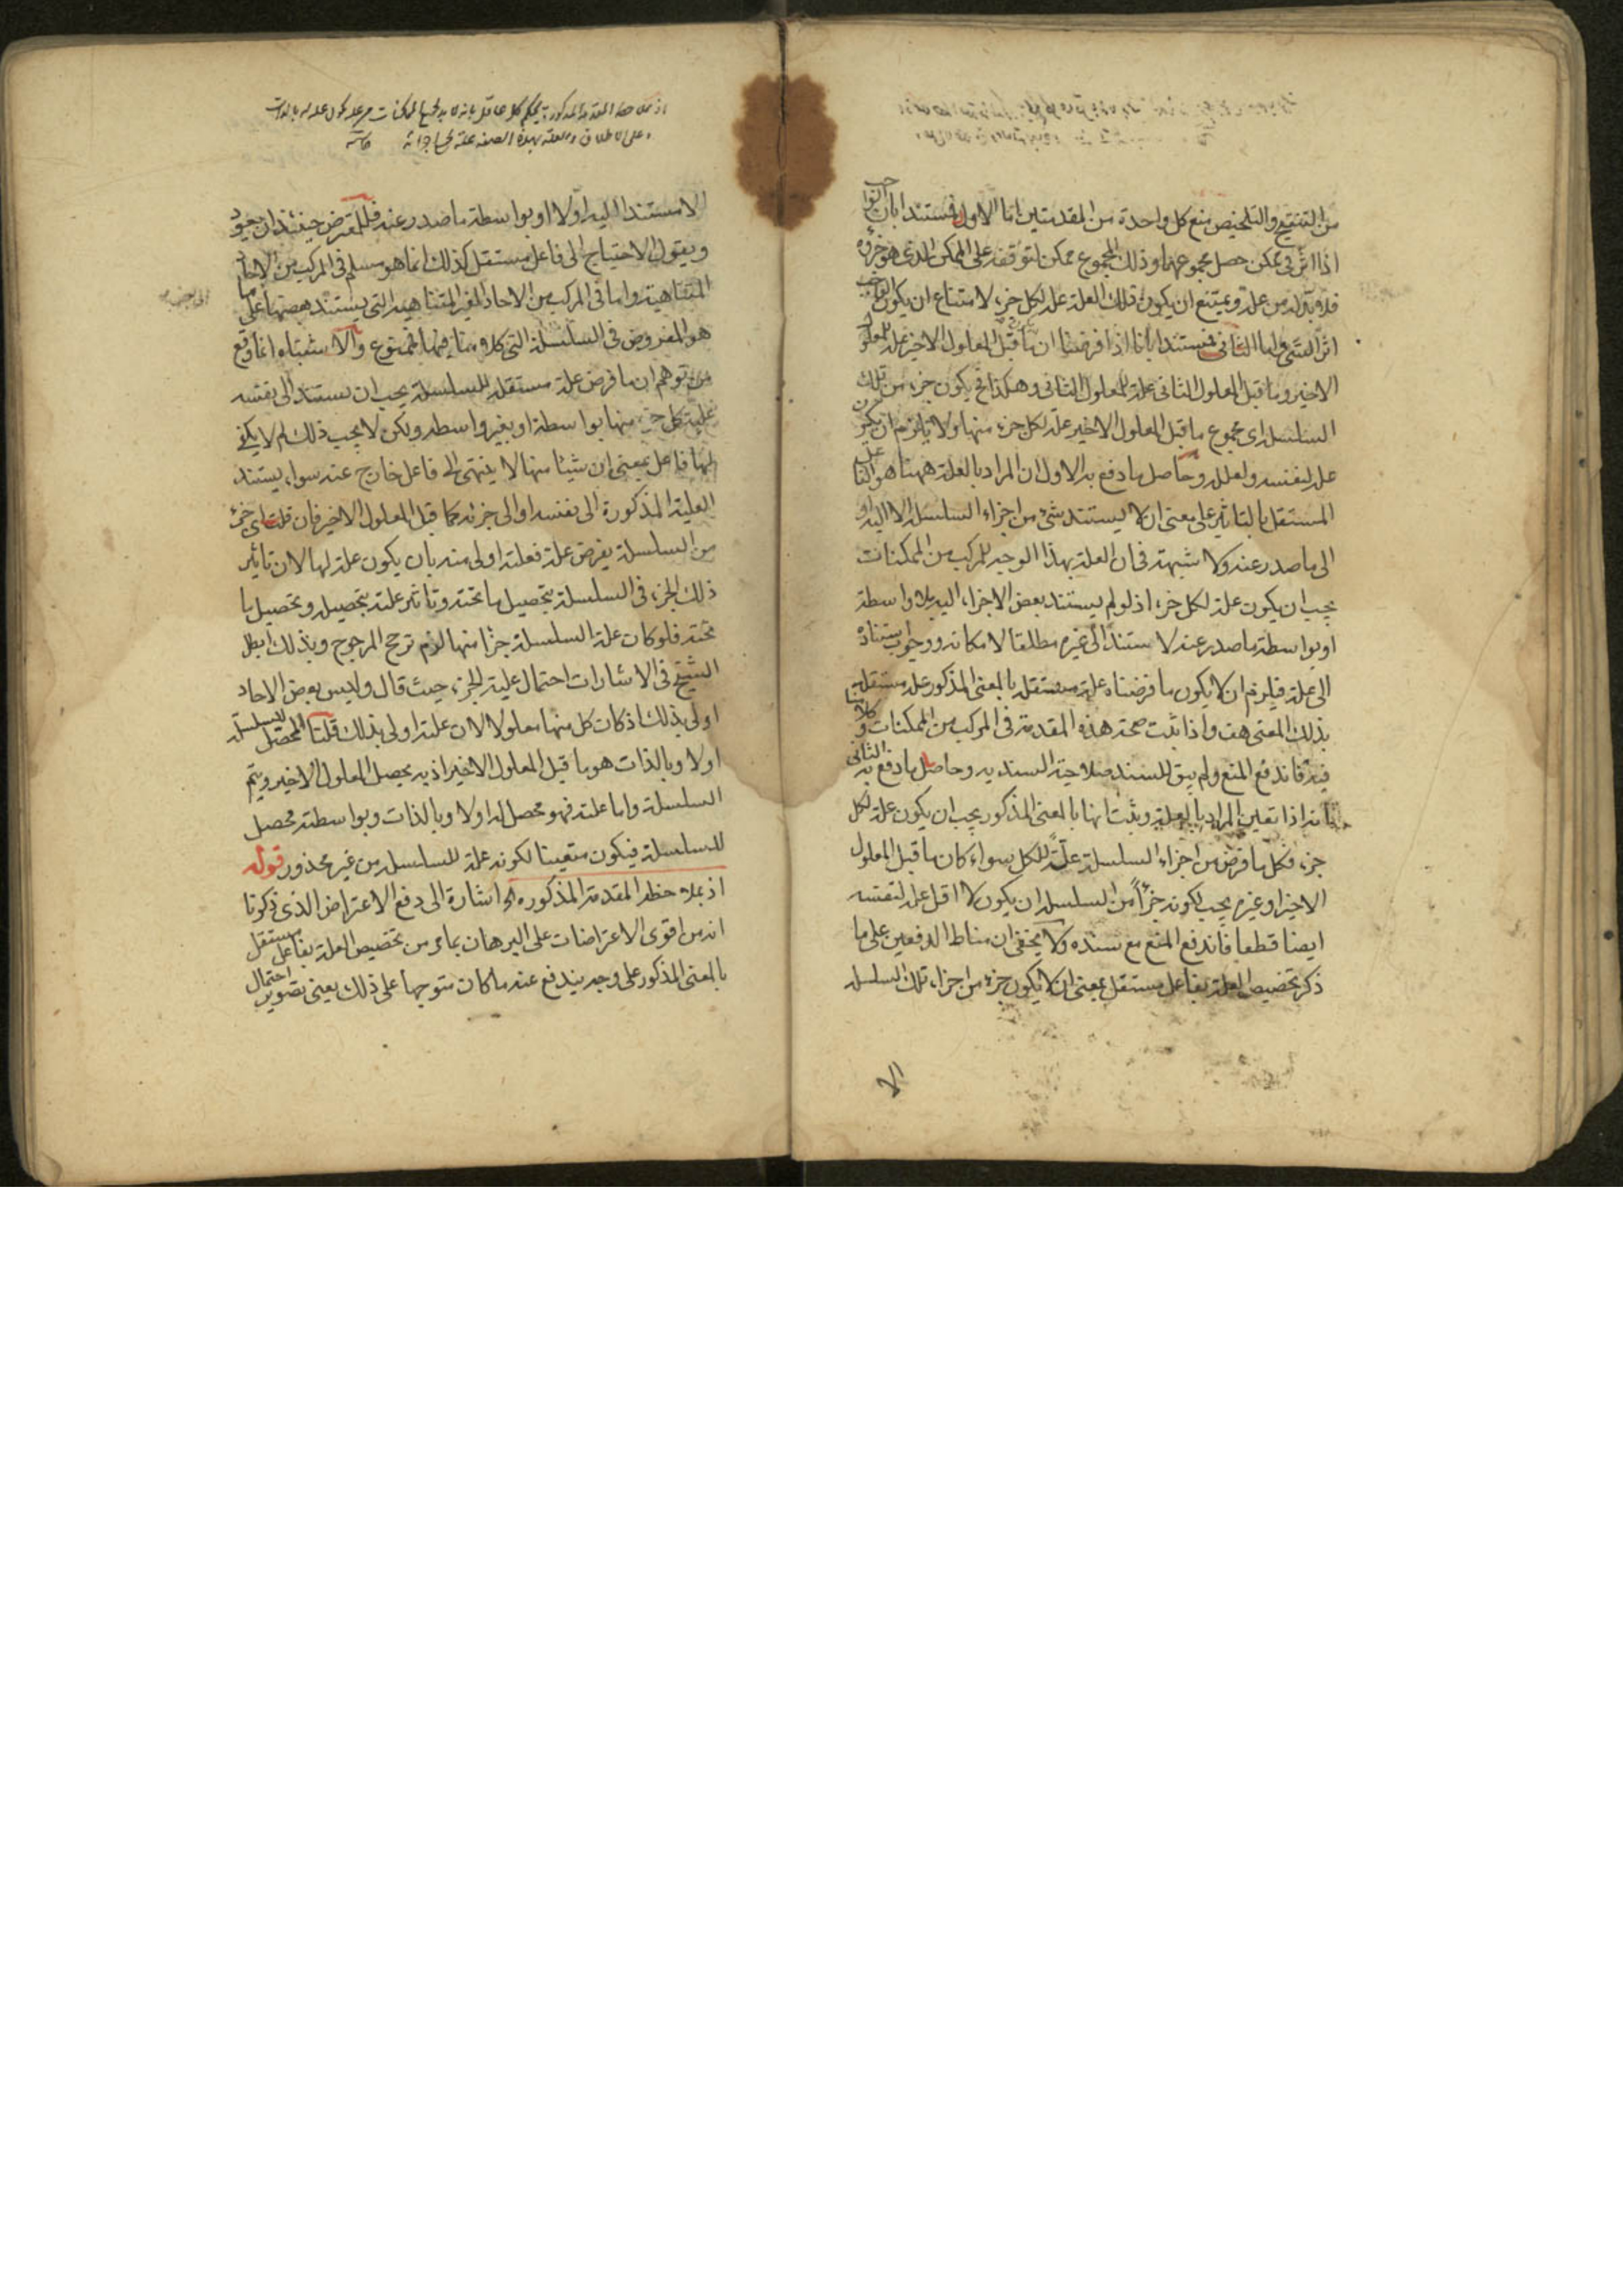 من التنقيح والتلخيص منع كل واحدة من المقدمتين اما الاول فمستندا بان الواجب
اذا اثر في ممكن حصل مجموعهما وذلك المجموع ممكن لتوقفه على الممكن الذي هو جزؤه
فلا بد له من علة ويمتنع ان يكون تلك العلة علة لكل جزء لامتناع ان يكون الواجب
اثر الشيء واما الثاني فمستندا بانا اذا فرضنا ان ما قبل المعلول الاخير علة للمعلول
الاخير وما قبل المعلول الثاني علة للمعلول الثاني وهكذا فح يكون جزء من تلك
السلسلة اي مجموع ما قبل المعلول الاخير علة لكل جزء منها ولا يلزم ان يكون
علة لنفسه ولعلله وحاصل ما دفع به الاول ان المراد بالعلة ههنا هو الفاعل
المستقل بالتاثير على معنى ان لا يستند شيء من اجزاء السلسلة الا اليه او
الى ما صدر عنه ولا شبهة في ان العلة بهذا الوجه للمركب من الممكنات
يجب ان يكون علة لكل جزء اذ لو لم يستند بعض الاجزاء اليه بلا واسطة
او بواسطة ما صدر عنه لاستند الى غيره مطلقا لامكانه ووجوب استناده
الى علة فيلزم ان لا يكون ما فرضناه علة مستقلة بالمعنى المذكور علة مستقلة
بذلك المعنى هف واذا ثبت صحة هذه المقدمة في المركب من الممكنات وكلامنا
فيه فاندفع المنع ولم يبق للسند صلاحية السندية وحاصل ما دفع به الثاني
انه اذا تعين المراد بالعلة وثبت انها بالمعنى المذكور يجب ان يكون علة لكل
جزء فكل ما فرض من اجزاء السلسلة علة للكل سواء كان ما قبل المعلول
الاخير او غيره يجب لكونه جزأ من السلسلة ان يكون لا اقل علة لنفسه
ايضا قطعا فاندفع المنع مع سنده ولا يخفى ان مناط الدفعين على ما
ذكر تخصيص العلة بفاعل مستقل بمعنى ان لا يكون جزء من اجزاء تلك السلسلة
الا
الا مستندا اليه اولا او بواسطة ما صدر عنه فللمعترض حينئذ ان يعود
ويقول الاحتياج الى فاعل مستقل كذلك انما هو مسلم في المركب من الاحاد
المتناهية واما في المركب من الاحاد الغير المتناهية التي يستند بعضها على ما
هو المفروض في السلسلة التي كلامنا فيها فممنوع والاشتباه انما وقع
من توهم ان ما فرض علة مستقلة للسلسلة يجب ان يستند الى نفسه
علية كل جزء منها بواسطة او بغير واسطة ولكن لا يجب ذلك لم لا يكفي
لها فاعل بمعنى ان شيئا منها لا ينتهي الى فاعل خارج عنه سواء يستند
العلية المذكورة الى نفسه او الى جزئه كما قبل المعلول الاخير فان قلت اي جزء
من السلسلة يفرض علة فعلته اولى منه بان يكون علة لها لان تاثير
ذلك الجزء في السلسلة بتحصيل ما تحته وتاثير علته بتحصيله وتحصيل ما
تحته فلو كان علة السلسلة جزأ منها لزم ترجح المرجوح وبذلك ابطل
الشيخ في الاشارات احتمال علية الجزء حيث قال وليس بعض الاحاد
اولى بذلك اذ كان كل منها معلولا لان علته اولى بذلك قلنا المحصل للسلسلة
اولا وبالذات هو ما قبل المعلول الاخير اذ به يحصل المعلول الاخير ويتم
السلسلة واما علته فهو محصل له اولا وبالذات وبواسطته محصل
للسلسلة فيكون متعينا لكونه علة للسلسلة من غير محذور قوله
اذ بملاحظة المقدمة المذكورة الخ اشارة الى دفع الاعتراض الذي ذكرنا
انه من اقوى الاعتراضات على البرهان بما مر من تخصيص العلة بفاعل مستقل
بالمعنى المذكور على وجه يندفع عنه ما كان متوجها على ذلك يعنى تصوير احتمال